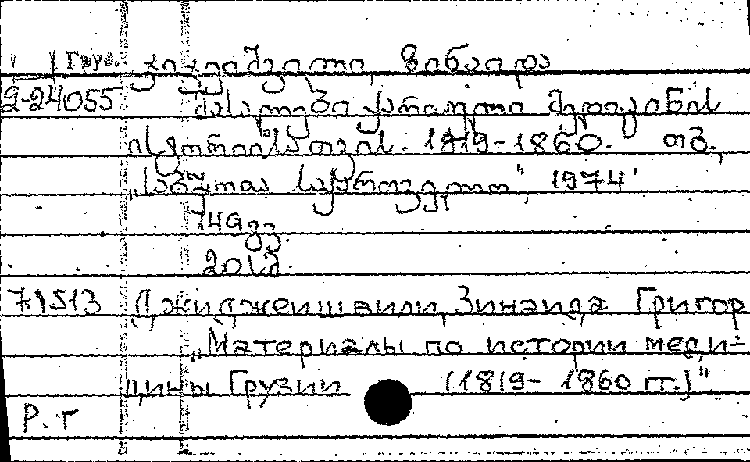 Груз. ჯიჯეიშვილი, ზინაიდა
2-24055 მასალები ქართული მედიცინის
ისტორიისათვის. 1819-1860. თბ.,
„საბჭოთა საქართველო", 1974
149გვ.
20
71513 Джиджеишвили, Зинаида Григор
„Материалы по истории меди-
цины Грузии (1819-1860 гг.)"
Р. г